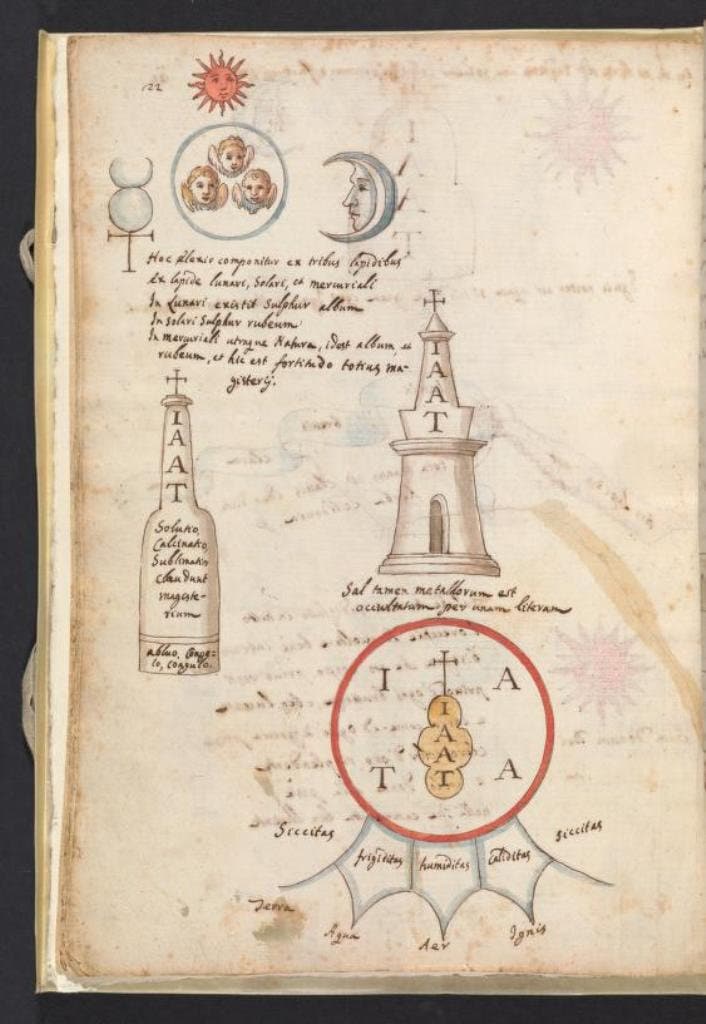 22
Hoc Elexir componitur ex tribus lapidibus
Ex lapide lunari, Solari, et mercuriali
In Lunari existit Sulphur album
In solari Sulphur rubeum
In mercuriali utraque Natura, idest album, et
rubeum, et hic est fortitudo totius ma-
gisterij.
I
A
A
T
Solutio,
Calcinatio,
Sublimatio
claudunt
magiste-
rium
abluo, Conge-
lo, coagulo.
I
A
A
T
Sal tamen metallorum est
occultatum per unam literam
I A
I
A
A
T
T A
Siccitas frigiditas humiditas caliditas siccitas
Terra Aqua Aer Ignis